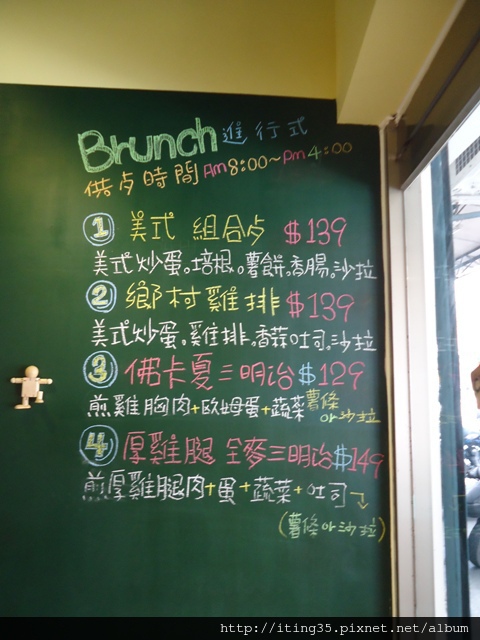 Brunch 進行式
供点時間 Am 8:00~Pm 4:00
① 美式 組合点 $139
美式炒蛋。培根。薯餅。香腸。沙拉
② 鄉村雞排 $139
美式炒蛋。雞排。香蒜吐司。沙拉
③ 佛卡夏三明治 $129
煎雞胸肉+歐姆蛋+蔬菜 薯條
or沙拉
④ 厚雞腿 全麥三明治 $149
煎厚雞腿肉+蛋+蔬菜+吐司
(薯條or沙拉)
http://iting35.pixnet.net/album